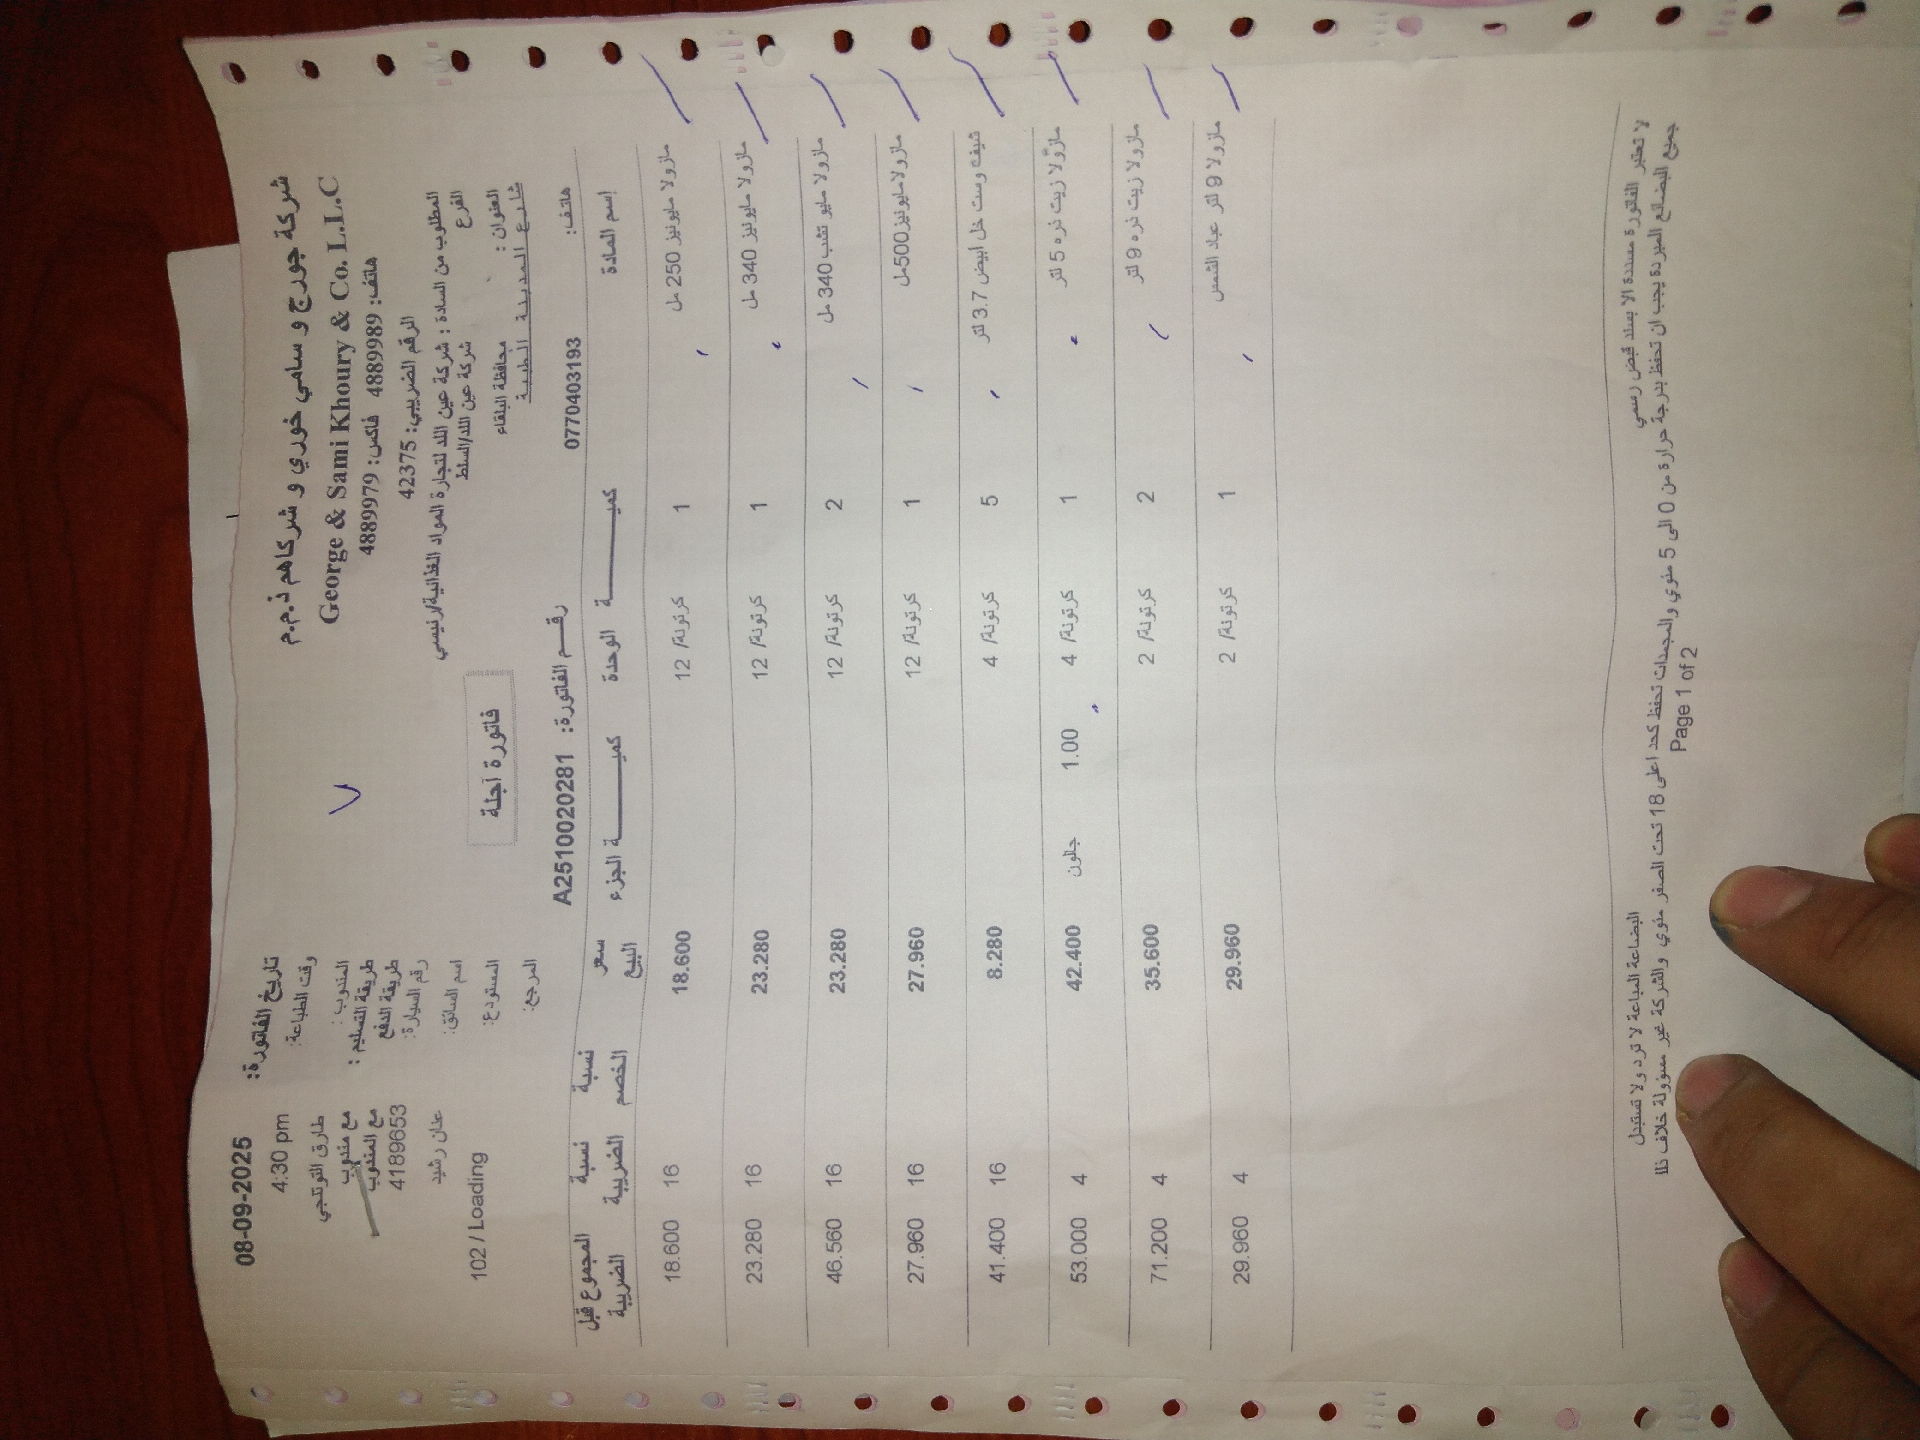 شركة جورج و سامي خوري و شركاهم ذ.م.م
George & Sami Khoury & Co. L.L.C
هاتف: 4889989 فاكس: 4889979
الرقم الضريبي: 42375
المطلوب من السادة : شركة عين اللد لتجارة المواد الغذائية/رئيسي
الفرع شركة عين اللد/السلط
العنوان : محافظة البلقاء
شارع المدينة الطبية
هاتف: 0770403193
تاريخ الفاتورة: 08-09-2025
وقت الطباعة: 4:30 pm
المندوب : طارق التوتلجي
طريقة التسليم : مع مندوب
طريقة الدفع مع المندوب
رقم السيارة: 4189653
اسم السائق: عدنان رشيد
المستودع: 102 / Loading
المرجع:
فاتورة آجلة
رقم الفاتورة: A2510020281
إسم المادة كمية الوحدة كمية الجزء سعر البيع نسبة الخصم نسبة الضريبة المجموع قبل الضريبة
مازولا مايونيز 250 مل 1 كرتونة/ 12 18.600 16 18.600
مازولا مايونيز 340 مل 1 كرتونة/ 12 23.280 16 23.280
مازولا مايو تشب 340 مل 2 كرتونة/ 12 23.280 16 46.560
مازولامايونيز500مل 1 كرتونة/ 12 27.960 16 27.960
شيف وست خل ابيض 3.7 لتر 5 كرتونة/ 4 8.280 16 41.400
مازولا زيت ذره 5 لتر 1 كرتونة/ 4 1.00 جالون 42.400 4 53.000
مازولا زيت ذره 9 لتر 2 كرتونة/ 2 35.600 4 71.200
مازولا 9 لتر عباد الشمس 1 كرتونة/ 2 29.960 4 29.960
لا تعتبر الفاتورة مسددة الا بسند قبض رسمي البضاعة المباعة لا ترد ولا تستبدل
جميع البضائع المبردة يجب ان تحفظ بدرجة حرارة من 0 الى 5 مئوي والمجمدات تحفظ كحد اعلى 18 تحت الصفر مئوي والشركة غير مسؤولة خلاف ذلك
Page 1 of 2